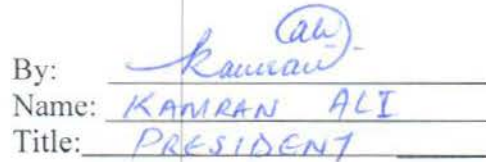 By: Kamran Ali
Name: KAMRAN ALI
Title: PRESIDENT